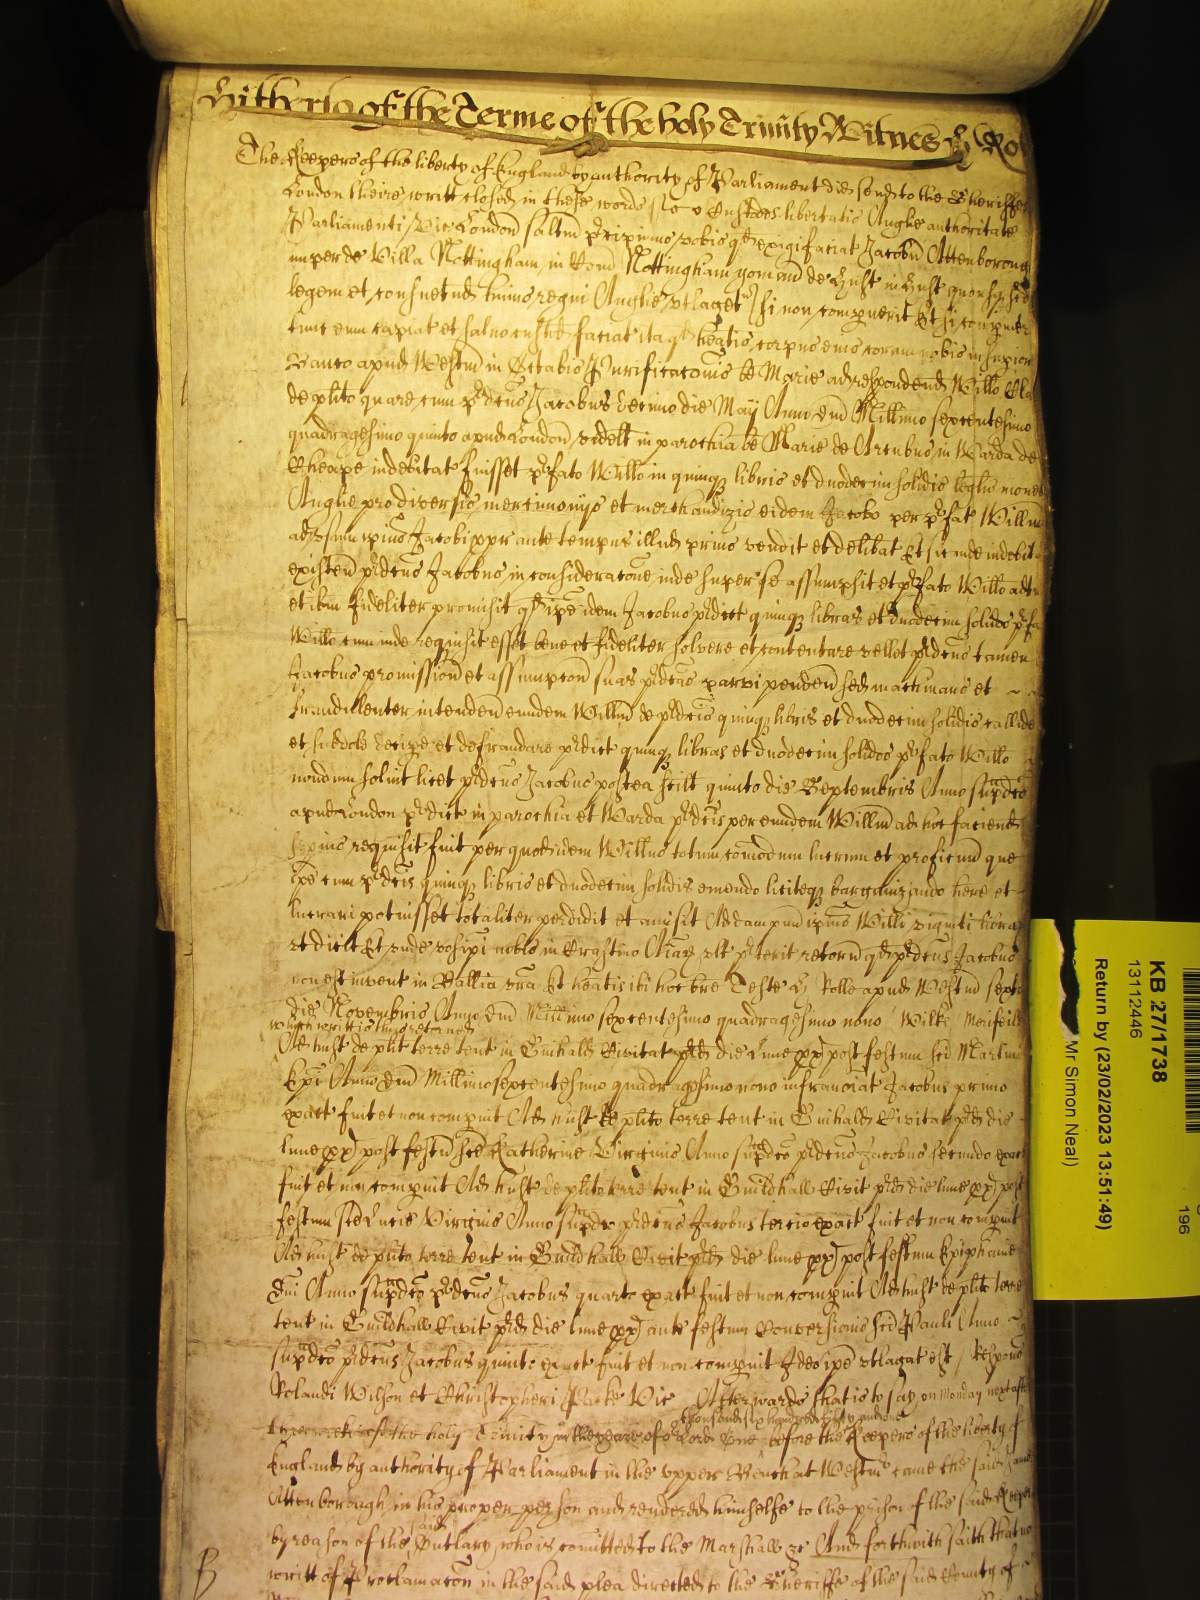 Hitherto of the Terme of the holy Trinity Witnes H Ro
The Keepers of the liberty of England by authority of Parliament did send to the Sheriffes
London theire writt closed in these words Custodes libertatis Anglie authoritate
Parliamenti Vic London saltm precipimus vobis qd exigi faciat Jacobu Attenboroug
nuper de Villa Nottingham in Com Nottingham yoman de Hust in Hust quousq scd
legem et consuetud huius regni Anglie utlaget si non comperuerit Et si comperuer
tunc eum capiat et salvo custod faciat ita qd heatis corpus eius coram nobis in superior
Banco apud Westm in Octabis Purificaconis be Marie ad respondend Willo
de plito quare cum pdcus Jacobus decimo die May Anno dni Millimo sexcentesimo
quadragesimo quinto apud London videlt in parochia be Marie de Arcubus in Warda de
Cheape indebitat fuisset pfato Willo in quinq libris et duodecim solidis legalis monet
Anglie pro diversis mercimonijs et merchandizis eidem Jacobo per pfat Willm
ad spiam ipius Jacobi ppr ante tempus illud primo vendit et delibat Et sic inde indebitat
existen pdcus Jacobus in consideracone inde super se assumpsit et pfato Willo adtu
et ibm fideliter promisit qd ipe idem Jacobus pdict quinq libras et duodecim solidos pfa
Willo cum inde requisit esset bene et fideliter solvere et contentare vellet pdcus tamen
Jacobus promission et assumpcon suas pdcas parvi penden sed machinans et
fraudulenter intenden eundem Willm de pdcis quinq libris et duodecim solidis callide
et subdole decipe et defraudare pdict quinq libras et duodecim solidos pfato Willo
nondum solvit licet pdcus Jacobus postea scilt quinto die Septembris Anno supdco
apud London pdict in parochia et Warda pdcis per eundem Willm ad hoc faciend
sepius requisit fuit per quod idem Willus totum comodum lucrum et proficuu que
ipe cum pdcis quinq libris et duodecim solidis emendo liciteq barganizando here et
lucrari potuisset totaliter perdidit et amisit Ad dampnu ipius Willi viginti librar
ut dicit Et unde vosipi nobis in Crastino Aiar ult preterit retorn qd pdcus Jacobus
non est invent in Ballia vra Et heatis ibi hoc bre Teste H Rolle apud Westm sexto
die Novembris Anno dni Millimo sexcentesimo quadragesimo nono Wilke
which writt is thus retorned
Ad hust de plit terre tent in Guihald Civitat pd die lune px post festum sci Martini
Epi Anno dni Millimo sexcentesimo quadragesimo nono infranoiat Jacobus primo
exact fuit et non compuit Ad hust de plito terre tent in Guihald Civitat pd die
lune px post festu sce Katherine Virginis Anno supdco pdcus Jacobus secundo exact
fuit et non compuit Ad hust de plito terre tent in Guildhall Civit pd die lune px post
festum sce Lucie Virginis Anno supdco pdcus Jacobus tercio exact fuit et non compuit
Ad hust de plito terre tent in Guildhall Civit pd die lune px post festum Epiphanie
dni Anno supdco pdcus Jacobus quarto exact fuit et non compuit Ad hust de plito terre
tent in Guildhall Civit pd die lune px ante festum Conversionis sci Pauli Anno
supdco pdcus Jacobus quinto exact fuit et non compuit Ideo ipe utlagat est Respons
Rolandi Wilson et Christopheri Packe Vic Afterwards that is to say on Monday next after
thousand six hundred fifty and one
three weeks of the holy Trinity in the yeare of or Lord One before the Keepers of the liberty of
England by authority of Parliament in the upper Bench at Westmr came the said James
Attenborough in his proper person and rendered himselfe to the prison of the said Keepers
by reason of the said Outlary who is comitted to the Marshall &c And forthwith saith that no
writt of Proclamacon in the said plea directed to the Sheriffe of the said County of
B
KB 27/1738
13112446
Return by (23/02/2023 13:51:49)
Mr Simon Neal)
196